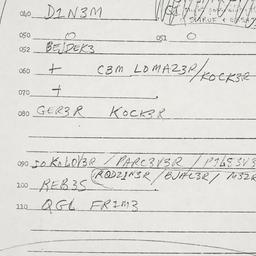 040 D1N3M
050 O 051 O
052 BEJDEK3
060 + CBM LOMAZ3R/KOCK3R
070 +
080 GER3R KOCK3R
090 SOKOLOV3R / PARC3V3R /
100 REB3S (ROD21N3R / BJAL3R /
110 QGL FR1M3